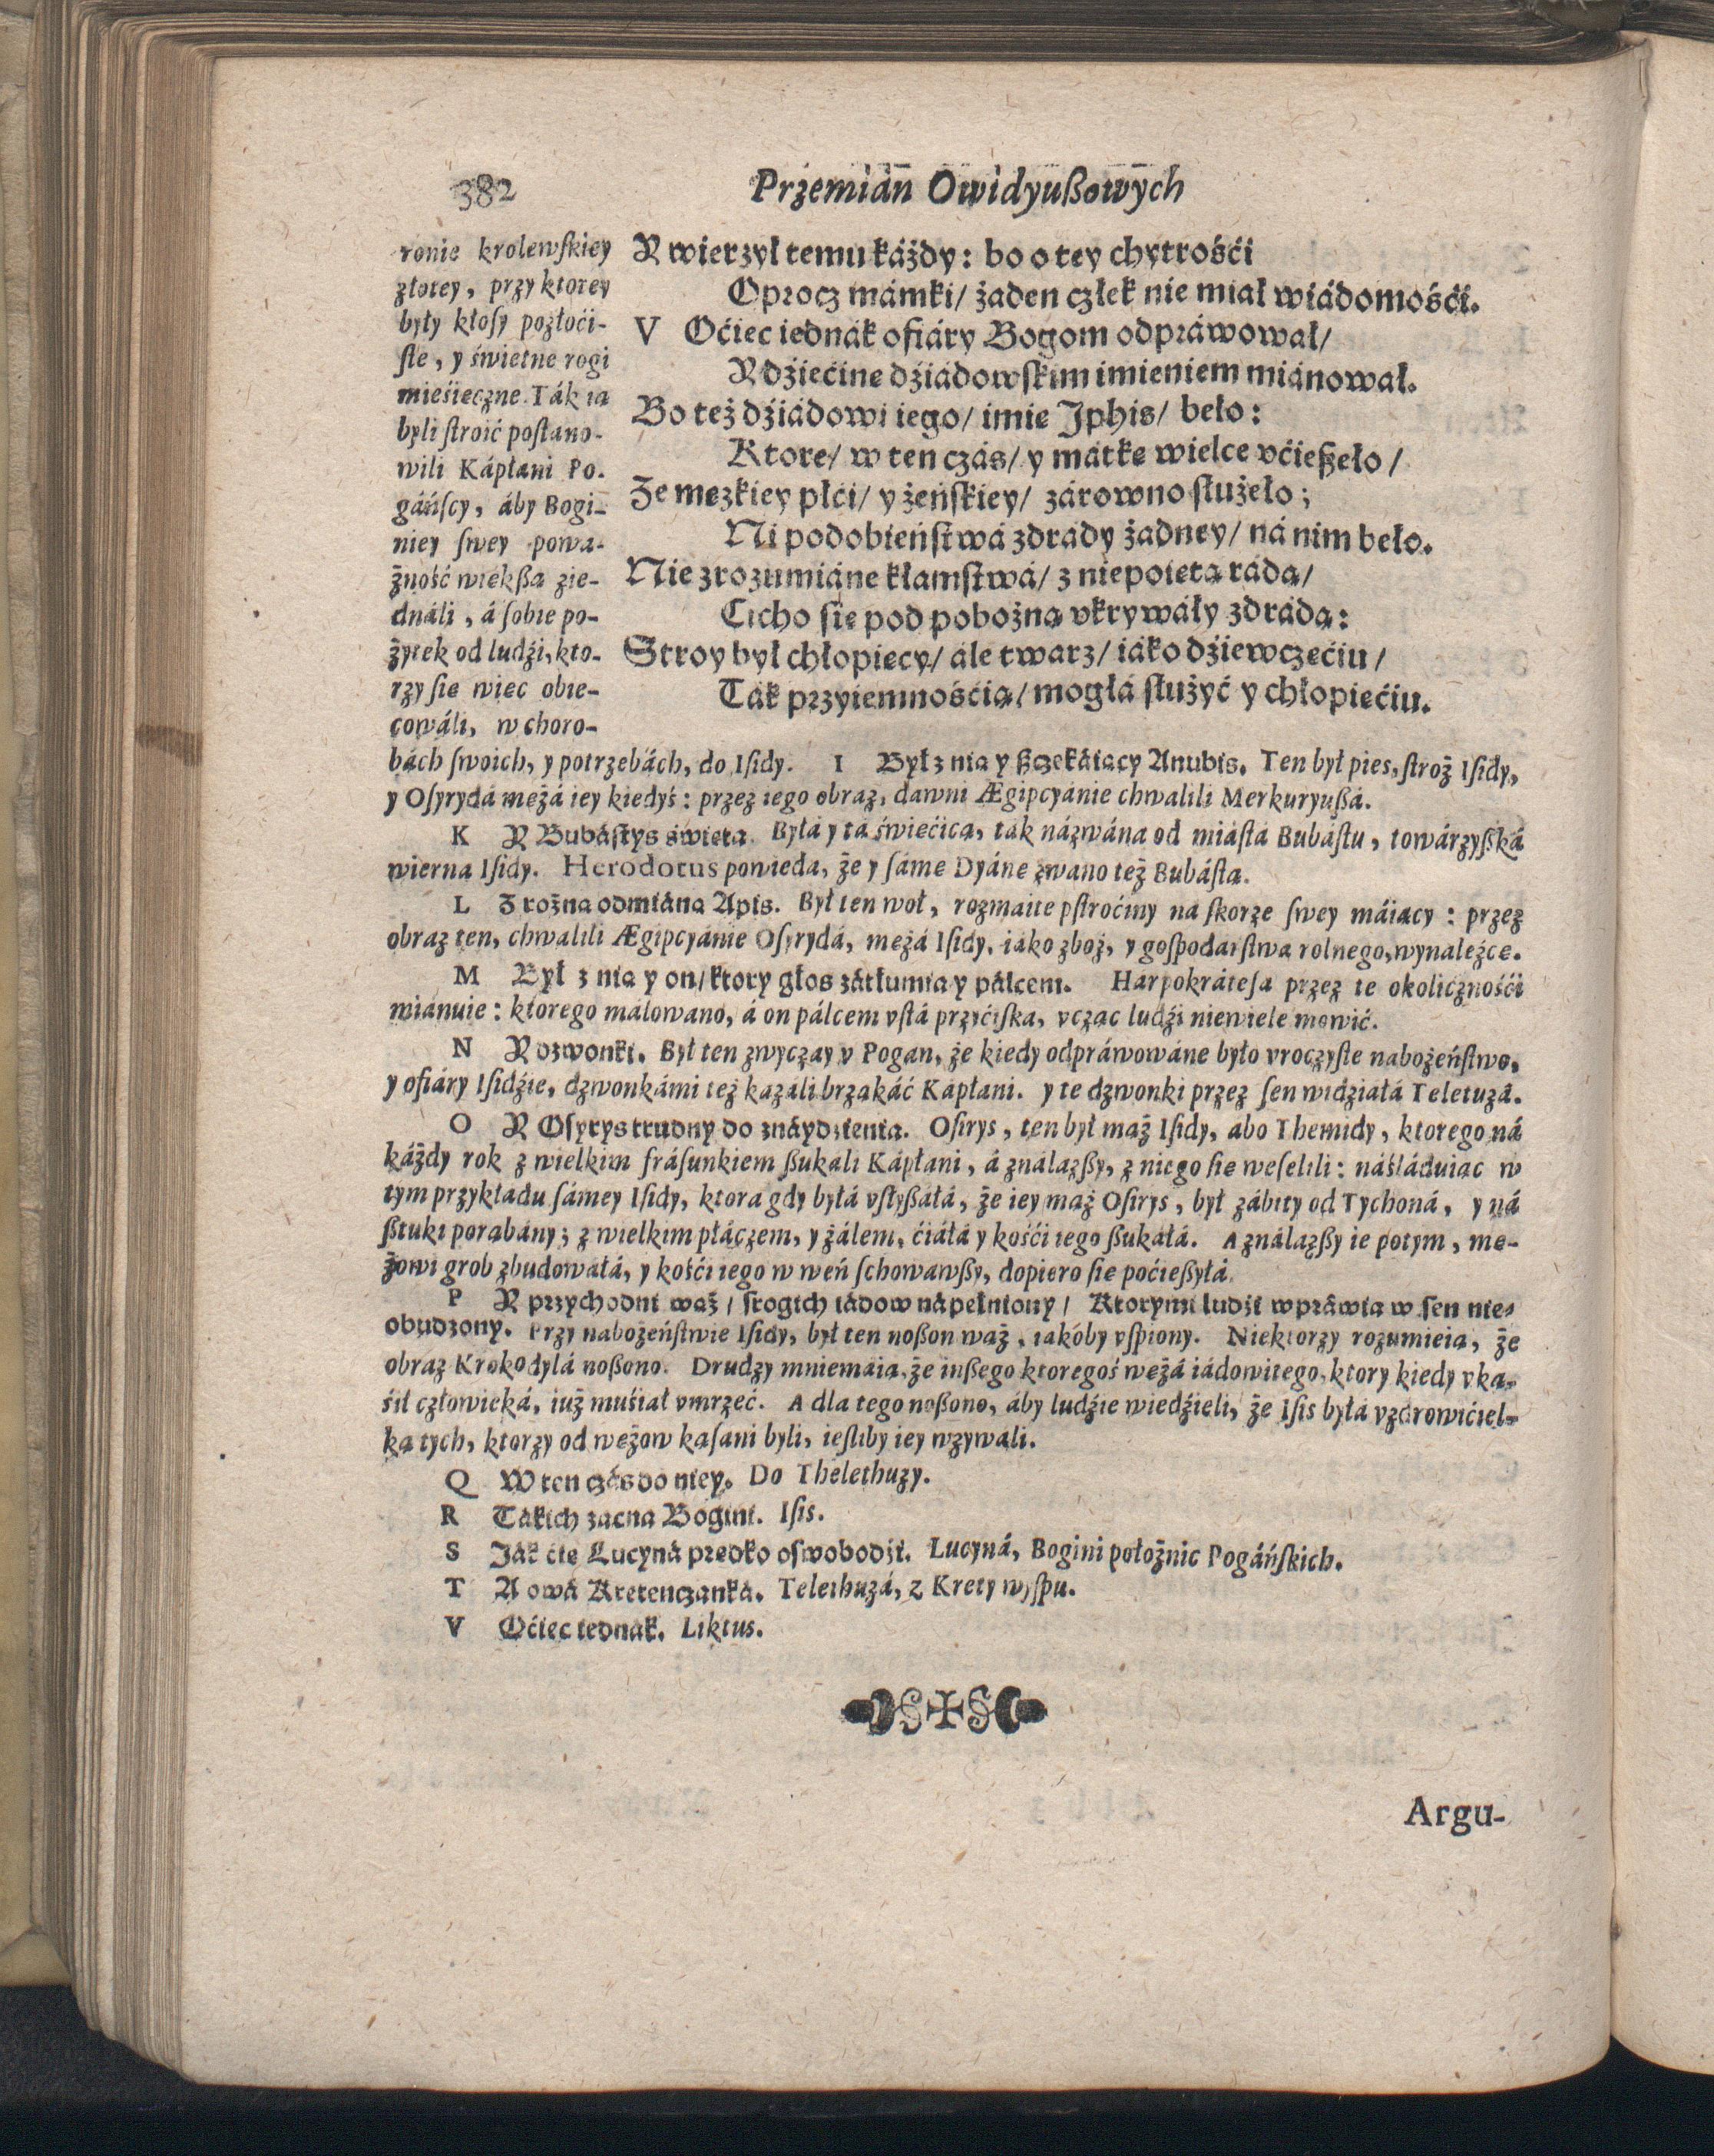 382 Przemián Owidyußowych
ronie krolewſkiey
złotey, przy ktorey
były kłoſy pozłoći-
ſte, y świetne rogi
mieśięczne. Ták ią
byli ſtroić poſtano-
wili Kápłani Po-
gáńſcy, áby Bogi-
niey ſwey powa-
żność więkßą zie-
dnáli, á ſobie po-
żytek od ludźi, kto-
rzy ſie więc obie-
cowáli, w choro-
Y wierzył temu káżdy: bo o tey chytrośći
Oprocz mámki/ żaden człek nie miał wiádomośći.
V Oćiec iednák ofiáry Bogom odpráwował/
Y dźiećinę dźiádowſkim imieniem miánował.
Bo też dźiádowi iego/ imię Jphis/ beło:
Ktore/ w ten czás/ y mátkę wielce vćießeło/
Że męzkiey płći/ y żeńſkiey/ zárowno służeło;
Ni podobieńſtwá zdrády żadney/ ná nim beło.
Nie zrozumiáne kłamſtwá/ z niepoiętą rádą/
Cicho ſię pod pobożną vkrywáły zdrádą:
Stroy był chłopięcy/ ále twarz/ iáko dźiewczęćiu/
Ták przyiemnośćią/ mogłá służyć y chłopięćiu.
bách ſwoich, y potrzebách, do Iſidy. I Był z nią y ßczekáiący Anubis. Ten był pies, ſtroż Iſidy,
y Oſyrydá mężá iey kiedyś: przez iego obraz, dawni Ægipcyánie chwalili Merkuryußá.
K Y Bubáſtys święta. Byłá y tá świećicá, ták názwána od miáſtá Bubáſtu, towárzyßká
wierna Iſidy. Herodotus powieda, że y ſámę Dyánę zwano też Bubáſtą.
L Z rożną odmiáną Apis. Był ten woł, rozmáite pſtroćiny ná ſkorze ſwey máiący: przez
obraz ten, chwalili Ægipcyánie Oſyrydá, mężá Iſidy, iáko zboż, y goſpodarſtwa rolnego, wynaleźcę.
M Był z nią y on/ ktory głos zátłumia y pálcem. Hárpokráteſá przez te okolicznośći
miánuie: ktorego málowano, á on pálcem vſtá przyćiſka, vcząc ludźi niewiele mowić.
N Y dzwonki. Był ten zwyczay v Pogan, że kiedy odpráwowáne było vroczyſte nabożeńſtwo,
y ofiáry Iſidźie, dzwonkámi też kazáli brzakáć Kápłani. y te dzwonki przez ſen widziáłá Teletuzá.
O Y Oſyrys trudny do ználydzienia. Oſirys, ten był mąż Iſidy, ábo Themidy, ktorego ná
káżdy rok z wielkim fráſunkiem ßukali Kápłani, á ználazßy, z niego ſie weſelili: náśláduiąc w
tym przykłádu ſámey Iſidy, ktora gdy byłá vſłyßáłá, że iey mąż Oſirys, był zábity od Tychoná, y ná
ßtuki porąbány; z wielkim płáczem, y żálem, ćiáłá y kośći iego ßukáłá. A ználazßy ie potym, mę-
żowi grob zbudowáłá, y kośći iego w weń ſchowawßy, dopiero ſie poćießyłá.
P Y przychodni wąż/ ſrogich iádow nápełniony/ Ktorymi ludźi wpráwia w ſen nie-
obudzony. Przy nabożeńſtwie Iſidy, był ten noßon wąż, iakóby vſpiony. Niektorzy rozumieią, że
obraz Krokodylá noßono. Drudzy mniemáią, że inßego ktoregoś wężá iádowitego, ktory kiedy vką-
śił człowieká, iuż muśiał vmrzeć. A dla tego noßono, áby ludźie wiedźieli, że Iſis byłá vzdrowićiel-
ką tych, ktorzy od wężow kąſani byli, ieſliby iey wzywali.
Q W ten czás do niey. Do Thelethuzy.
R Tákich zacna Bogini. Iſis.
S Ják ćię Lucyná prędko oſwobodźi. Lucyná, Bogini położnic Pogáńſkich.
T A owá Kretenczanká. Telethuzá, z Krety wyſpu.
V Oćiec iednák. Liktus.
Argu-